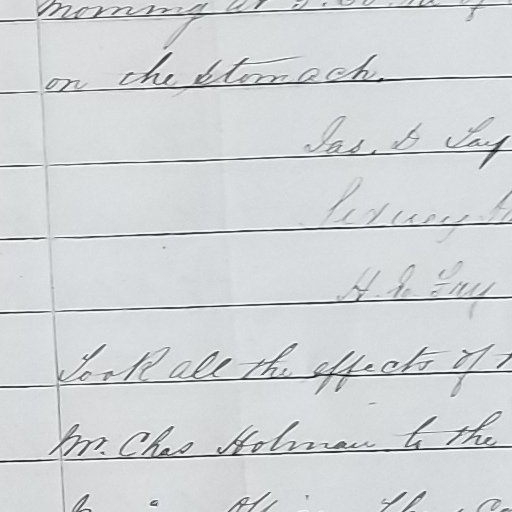 morning at
on the stomach.
Jas. D Lay
Sidney
H. D. Lay
Took all the effects of
Mr. Chas Holman to the